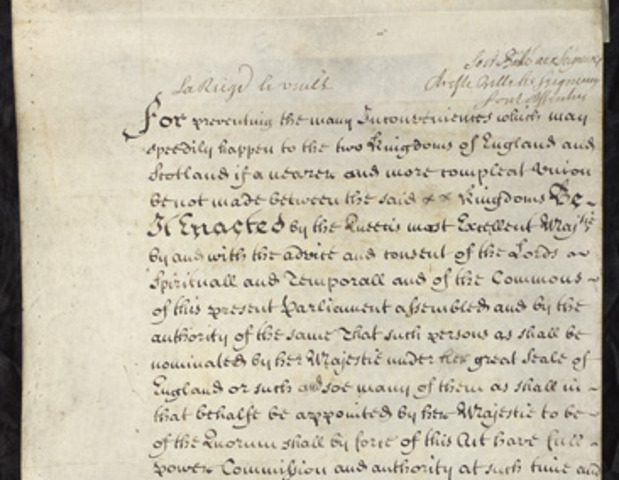 Soit Baillé aux Seigneurs
La Reyne le veult
A cest Bille les Seigneurs
sont Assentus
For preventing the many Inconveniences which may
speedily happen to the two Kingdoms of England and
Scotland if a nearer and more compleat Union
be not made between the said Kingdoms Be
It Enacted by the Queens most Excellent Maj:tie
by and with the advice and consent of the Lords
Spirituall and Temporall and of the Commons
of this present Parliament assembled and by the
authority of the same That such persons as shall be
nominated by her Majestie under her great Seale of
England or such and soe many of them as shall in
that behalfe be appointed by her Majestie to be
of the Quorum shall by force of this Act have full
power Commission and authority at such time and